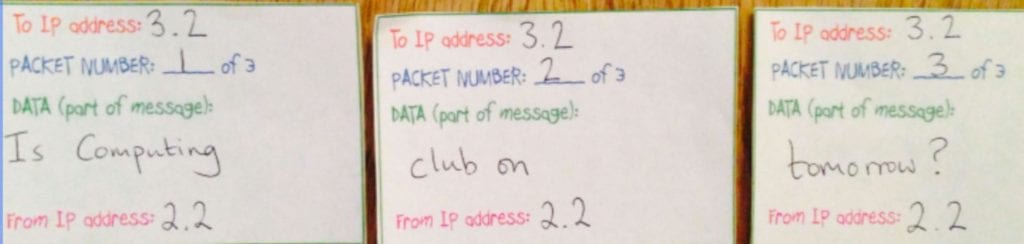 To IP address: 3.2
PACKET NUMBER: 1 of 3
DATA (part of message):
Is Computing
From IP address: 2.2
To IP address: 3.2
PACKET NUMBER: 2 of 3
DATA (part of message):
club on
From IP address: 2.2
To IP address: 3.2
PACKET NUMBER: 3 of 3
DATA (part of message):
tomorrow?
From IP address: 2.2